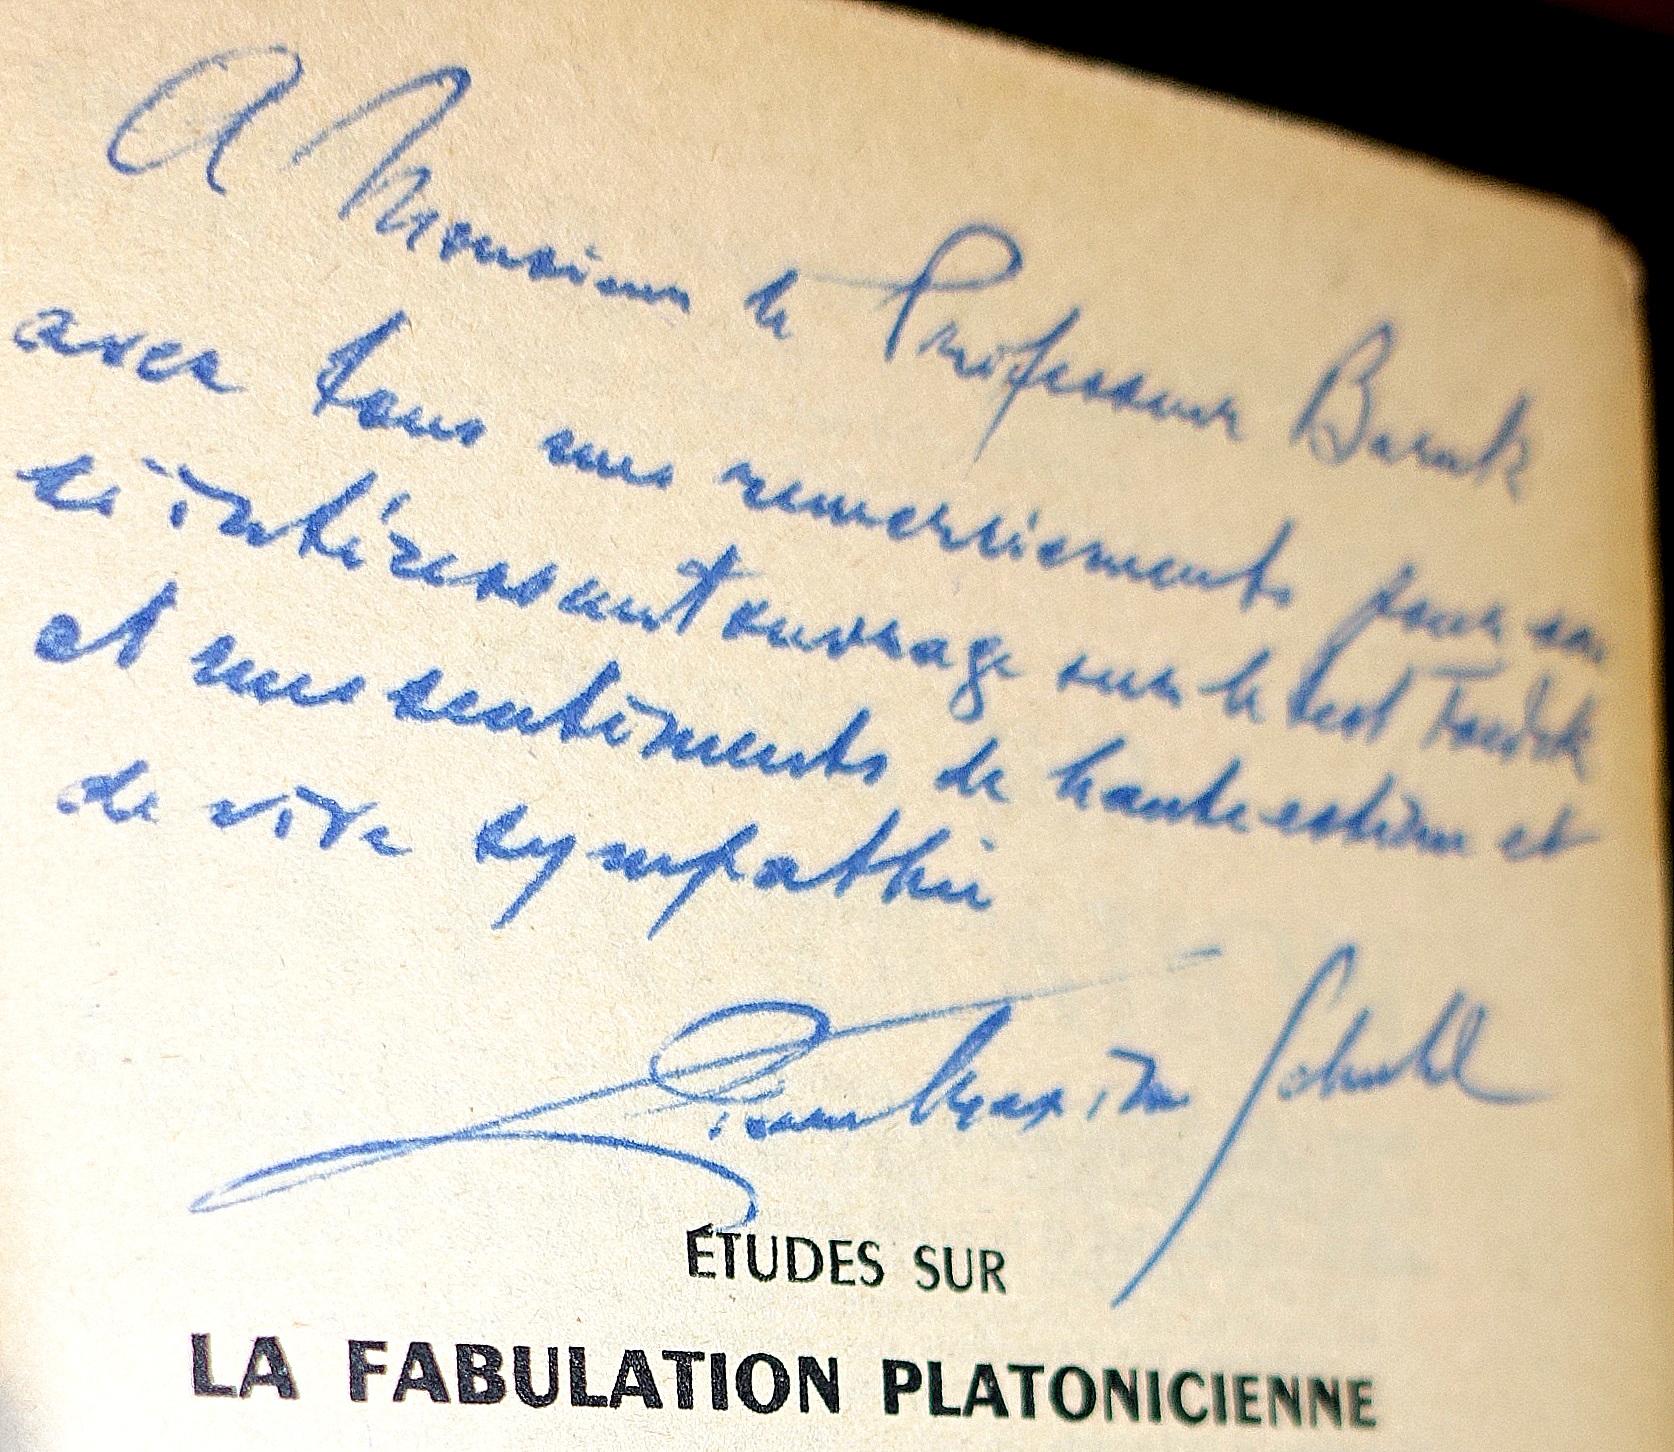 A Monsieur le Professeur Baruk
avec tous mes remerciements pour son
si intéressant ouvrage sur le test Tsedek
et mes sentiments de haute estime et
de vive sympathie
Pierre Maxime Schuhl
ÉTUDES SUR
LA FABULATION PLATONICIENNE